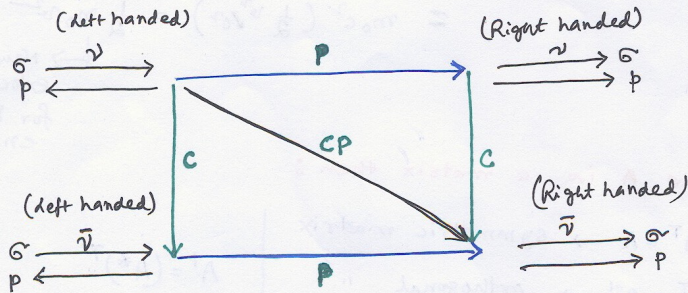 (left handed)
ν
σ
p
P
(Right handed)
ν
σ
p
C
CP
C
(left handed)
ν̄
σ
p
P
(Right handed)
ν̄
σ
p